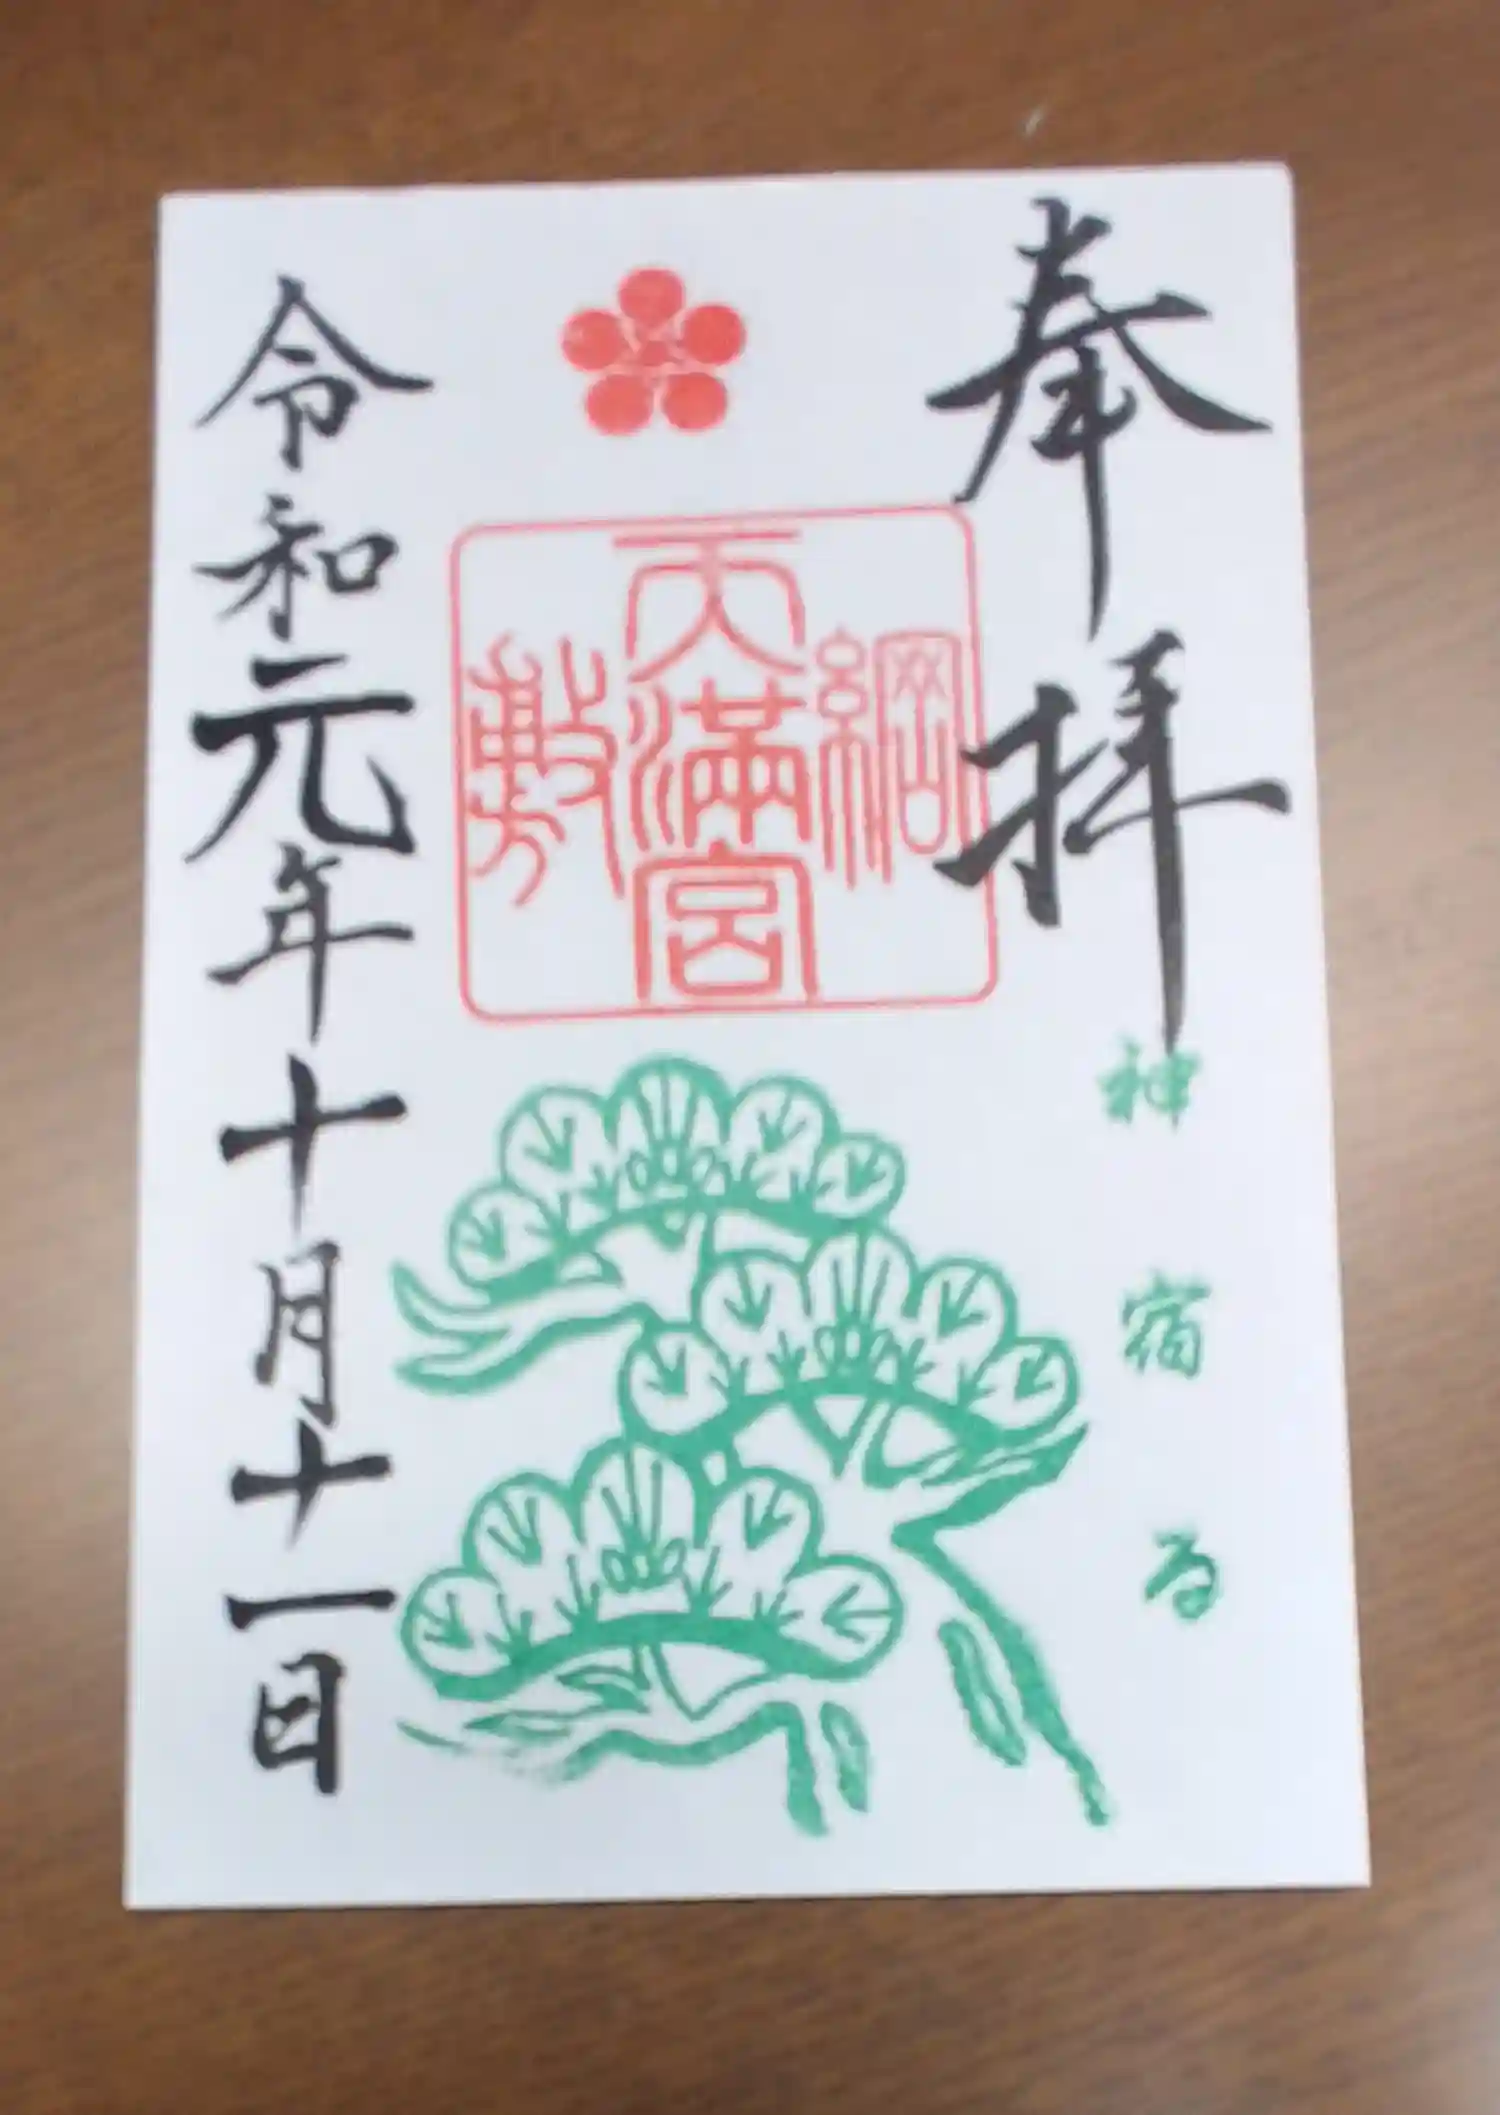 奉拝
神宿る
綱敷
天満宮
令和元年十月十一日